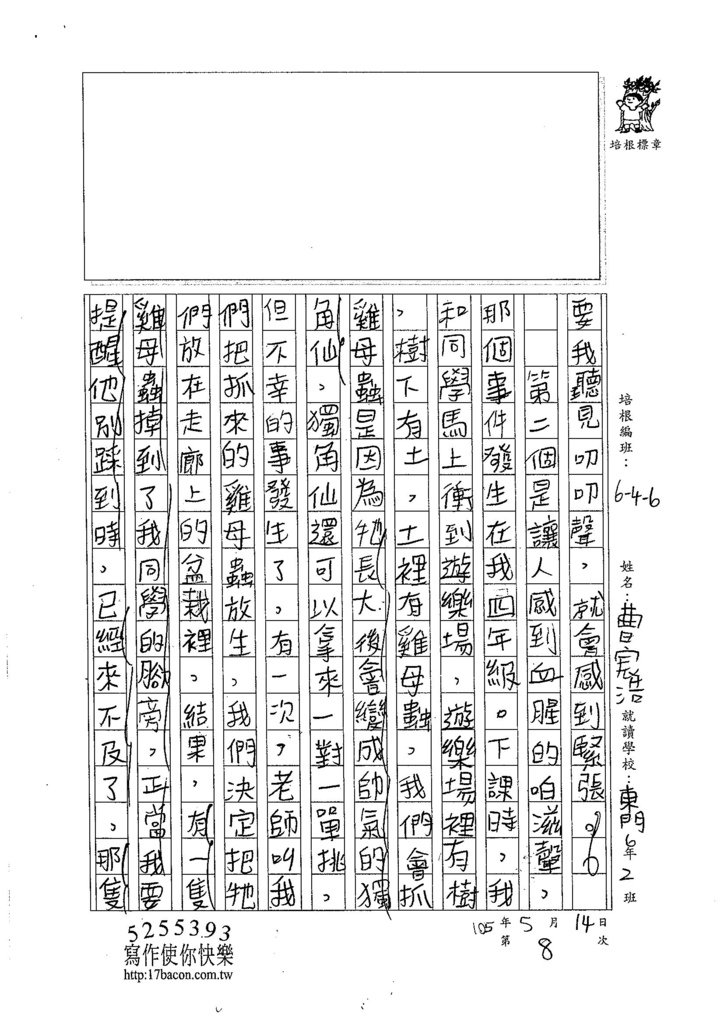 培根標章
培根編班：6-4-6
姓名：曹宸浩
就讀學校：東門6年2班
105年5月14日
第8次
要我聽見叨叨聲，就會感到緊張。
第二個是讓人感到血腥的咱滋聲，
那個事件發生在我四年級。下課時，我
和同學馬上衝到遊樂場，遊樂場裡有樹
，樹下有土，土裡有雞母蟲，我們會抓
雞母蟲是因為牠長大後會變成帥氣的獨
角仙，獨角仙還可以拿來一對一單挑，
但不幸的事發生了，有一次，老師叫我
們把抓來的雞母蟲放生，我們決定把牠
們放在走廊上的盆栽裡，結果，有一隻
雞母蟲掉到了我同學的腳旁，正當我要
提醒他別踩到時，已經來不及了，那隻
5255393
寫作使你快樂
http:17bacon.com.tw